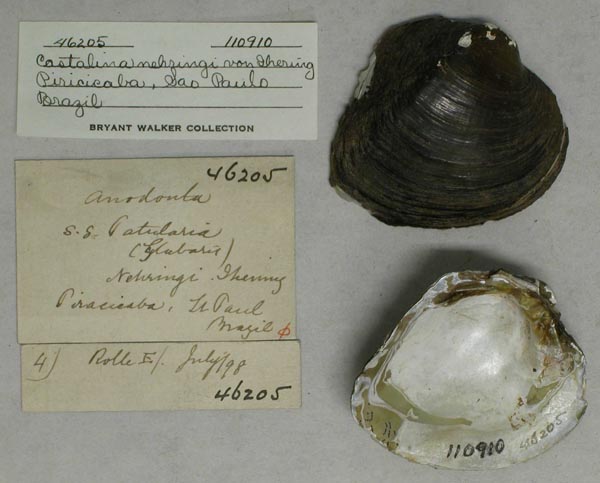 46205 110910
Castalina nehringi von Ihering
Piricicaba, Sao Paulo
Brazil
BRYANT WALKER COLLECTION
46205
Anodonta
s.g. Patularia
(Glabaris)
Nehringi Ihering
Piracicaba, St Paul
Brazil
4) Rolle July/98
46205
110910 46205